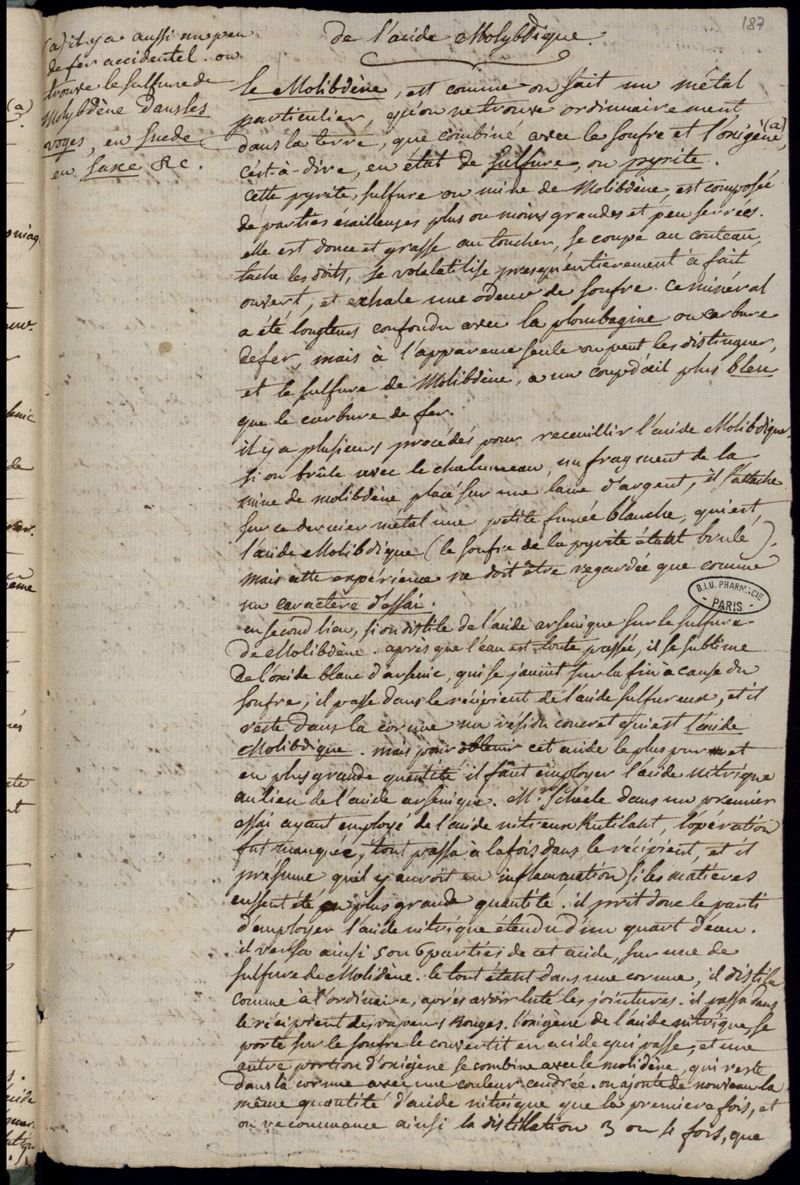 187
de l'acide Molybdique.
(a) il y a aussi un peu
de fer accidentel. on
trouve le sulfure de
Molybdène dans les
voges, en Suede,
en Saxe &c.
le Molibdène, est comme on sait un métal
particulier, qu'on ne trouve ordinairement
dans la terre, que combiné avec le soufre et l'oxigène, (a)
c'est-à-dire, en état de sulfure, ou pyrite.
cette pyrite, sulfure ou mine de Molibdène, est composée
de parties écailleuses plus ou moins grandes et peu serrées.
elle est douce et grasse au toucher, se coupe au couteau,
tache les doits, se volalatilise presqu'entierement à fait
ouvert, et exhale une odeur de soufre. ce minéral
a été longtems confondu avec la plombagine ou carbure
de fer, mais à l'apparence seule on peut les distinguer,
et le sulfure de Molibdène, a un coup d'œil plus bleu
que le carbure de fer.
il y a plusieurs procédés pour receuillir l'acide Molibdique.
si on brûle avec le chalumeau, un fragment de la
mine de molibdène placé sur une lame d'argent, il s'attache
sur ce dernier métal une petite fumée blanche, qui est,
l'acide Molibdique (le soufre de la pyrite étant brulé).
mais cette expérience ne doit être regardée que comme
un caractère d'essai.
B.I.U. PHARMACIE
- PARIS -
en second lieu, si on distile de l'acide arsenique sur le sulfure
de Molibdène. après que l'eau est toute passée, il se sublime
de l'oxide blanc d'arsenic, qui se jaunit sur la fin à cause du
soufre; il passe dans le récipient de l'acide sulfureux, et il
reste dans la cornue un résidu concret qui est l'acide
Molibdique. mais pour obtenir cet acide le plus pur et
en plus grande quantité il faut employer l'acide nitrique
au lieu de l'acide arsenique. Mr. Schéele dans un premier
essai ayant employé de l'acide nitreux Rutilant, l'opération
fut manquée, tout passa à la fois dans le récipient, et il
présume qu'il y auroit eu inflammation si les matières
eussent été en plus grande quantité. il prit donc le parti
d'employer l'acide nitrique étendu d'un quart d'eau.
il versa ainsi 5 ou 6 parties de cet acide, sur une de
sulfure de Molidène. le tout étant dans une cornue, il distila
comme à l'ordinaire, après avoir luté les jointures. il passa dans
le récipient des vapeurs Rouges. l'oxigène de l'acide nitrique se
porte sur le soufre le convertit en acide qui passe, et une
autre portion d'oxigène se combine avec le molidène, qui reste
dans la cornue avec une couleur cendrée. on ajoute de nouveau la
même quantité d'acide nitrique que la premiere fois, et
on recommence ainsi la distillation 3 ou 4 fois, que